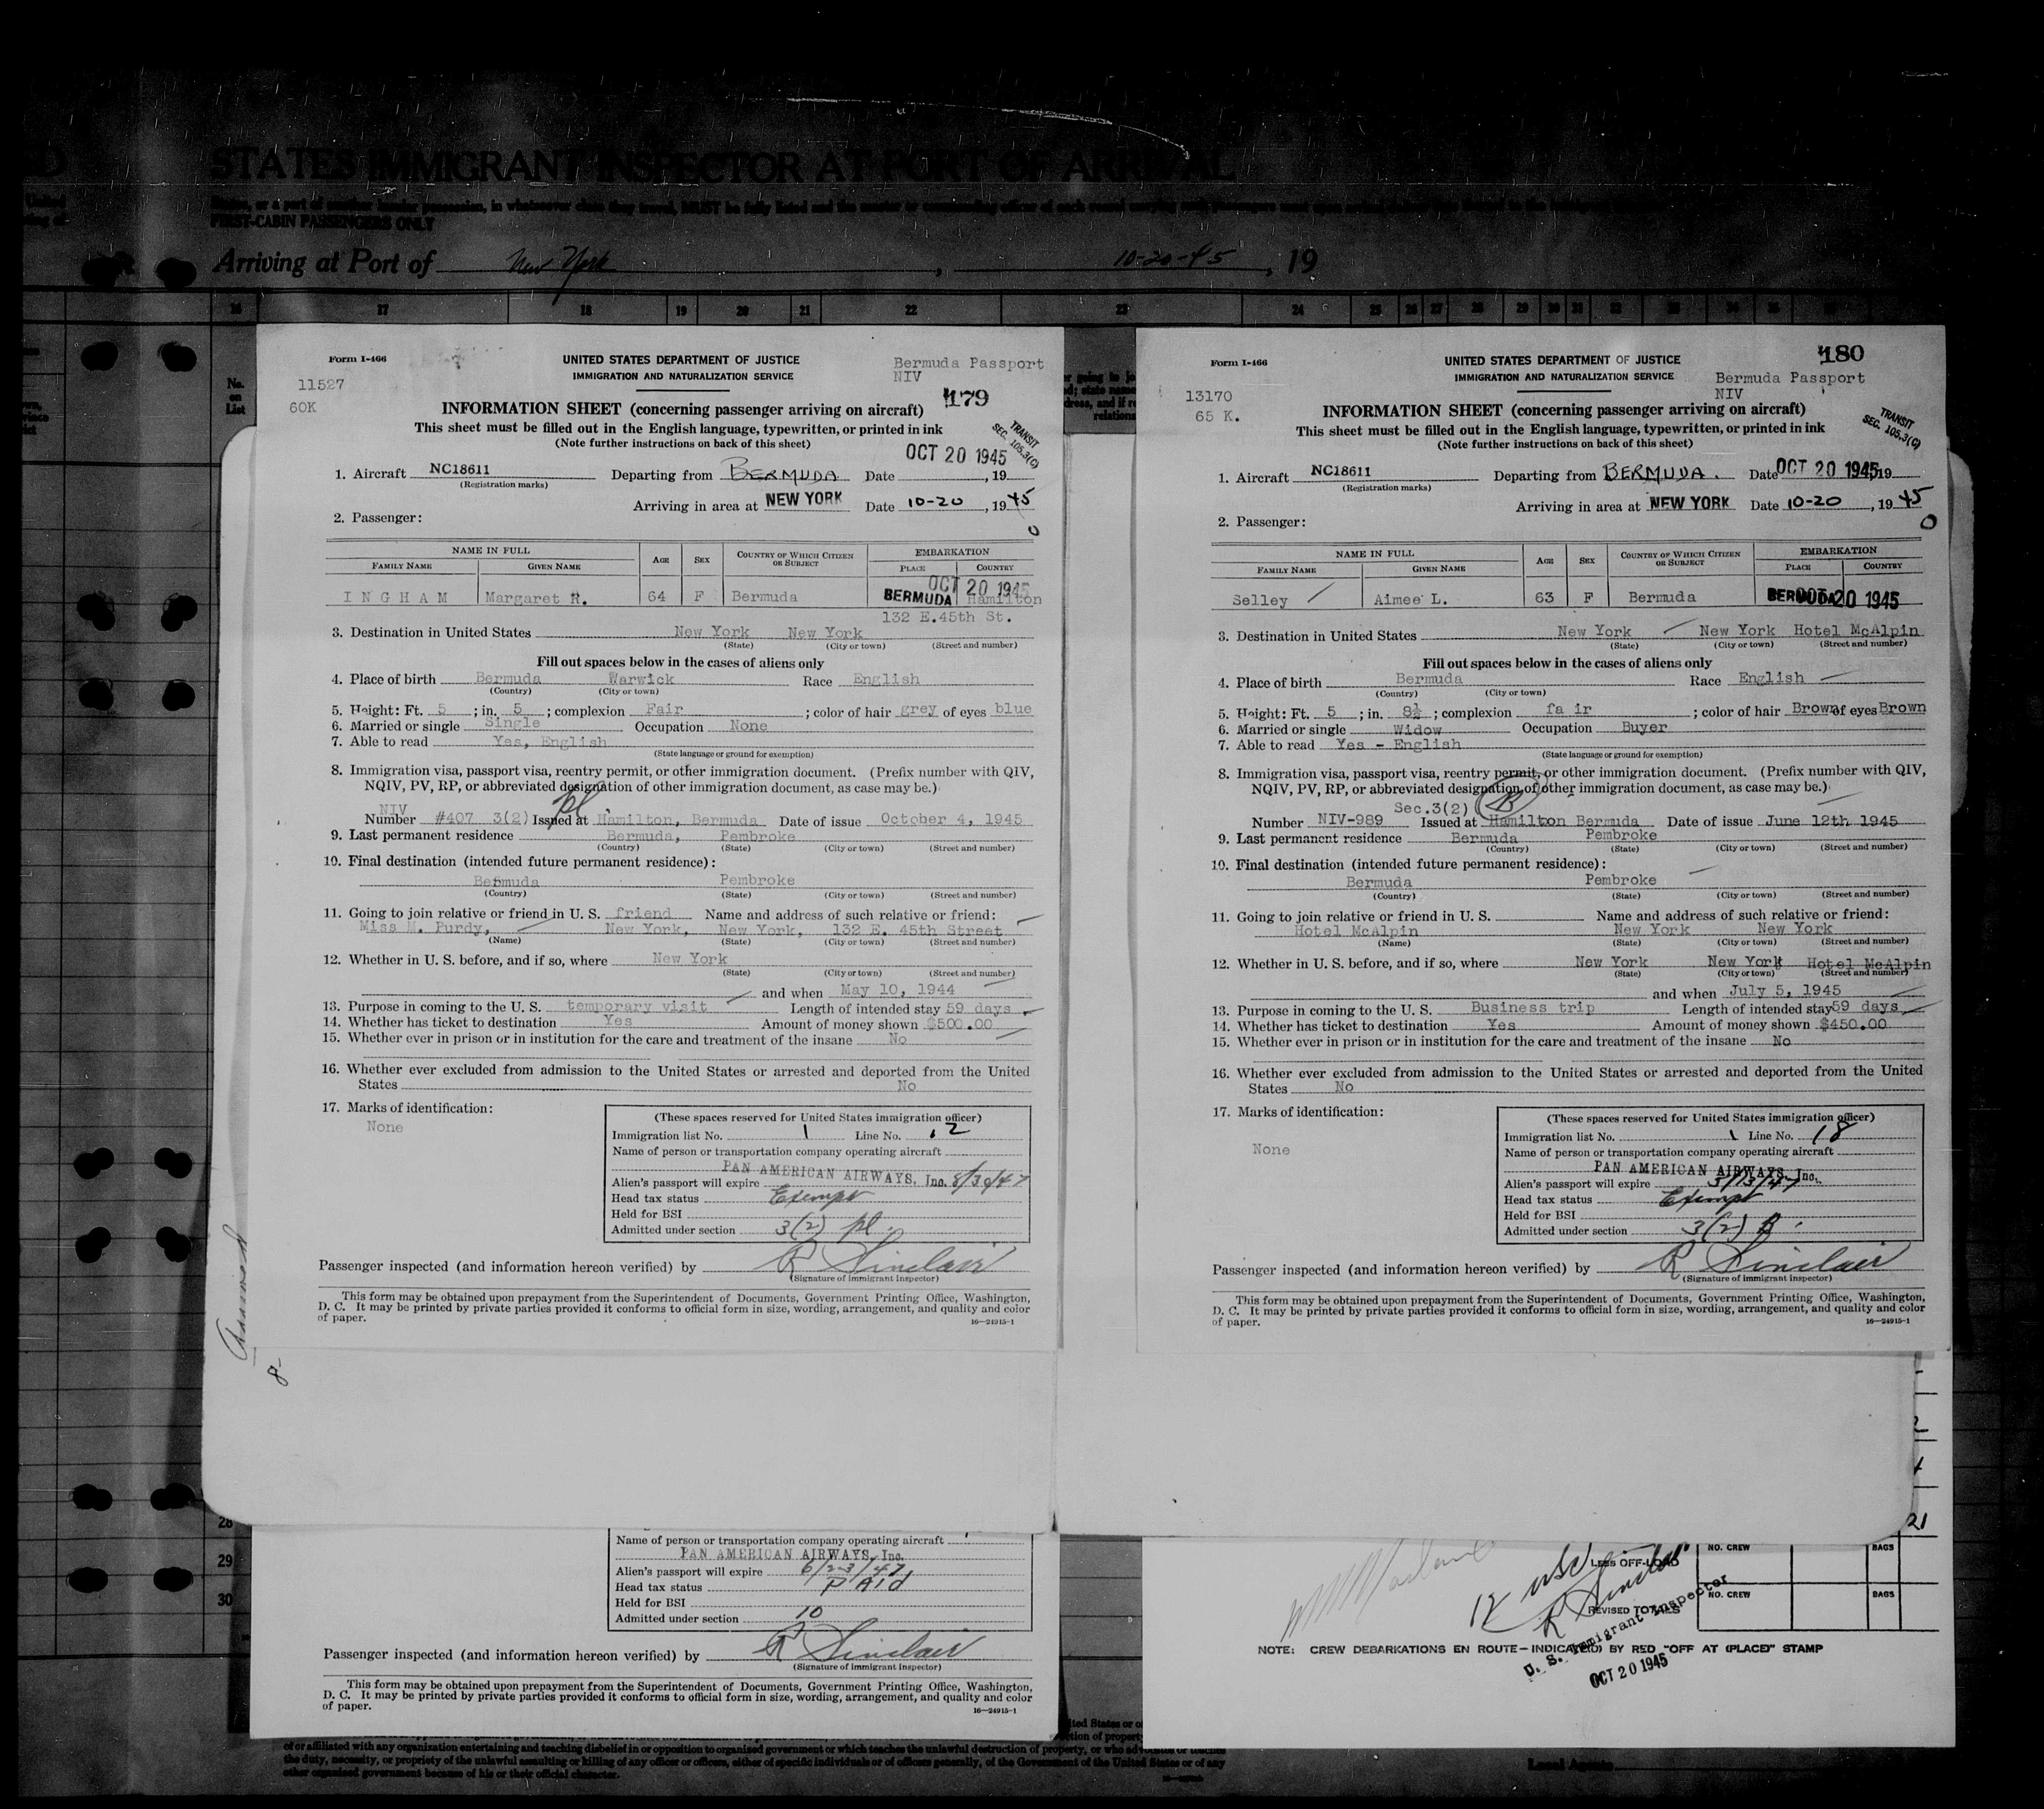 STATES IMMIGRANT INSPECTOR AT PORT OF ARRIVAL
FIRST-CABIN PASSENGERS ONLY
Arriving at Port of New York, 10-20-45, 19
16 17 18 19 20 21 22 23 24 25 26 27 28 29 30 31 32 33 34 35
No.
on
List
Form I-466
UNITED STATES DEPARTMENT OF JUSTICE
IMMIGRATION AND NATURALIZATION SERVICE
Bermuda Passport
NIV
11527
60K
179
INFORMATION SHEET (concerning passenger arriving on aircraft)
This sheet must be filled out in the English language, typewritten, or printed in ink
(Note further instructions on back of this sheet)
TRANSIT
SEC. 105.3(C)
OCT 20 1945
1. Aircraft NC18611 Departing from BERMUDA Date , 19
(Registration marks)
Arriving in area at NEW YORK Date 10-20, 1945
0
2. Passenger:
NAME IN FULL
FAMILY NAME GIVEN NAME AGE SEX COUNTRY OF WHICH CITIZEN OR SUBJECT EMBARKATION
PLACE COUNTRY
OCT 20 1945
INGHAM Margaret R. 64 F Bermuda BERMUDA Hamilton
132 E.45th St.
3. Destination in United States New York New York
(State) (City or town) (Street and number)
Fill out spaces below in the cases of aliens only
4. Place of birth Bermuda Warwick Race English
(Country) (City or town)
5. Height: Ft. 5 ; in. 5 ; complexion Fair ; color of hair grey of eyes blue
6. Married or single Single Occupation None
7. Able to read Yes, English
(State language or ground for exemption)
8. Immigration visa, passport visa, reentry permit, or other immigration document. (Prefix number with QIV,
NQIV, PV, RP, or abbreviated designation of other immigration document, as case may be.)
NIV pl.
Number #407 3(2) Issued at Hamilton, Bermuda Date of issue October 4, 1945
9. Last permanent residence Bermuda, Pembroke
(Country) (State) (City or town) (Street and number)
10. Final destination (intended future permanent residence):
Bermuda Pembroke
(Country) (State) (City or town) (Street and number)
11. Going to join relative or friend in U. S. friend Name and address of such relative or friend:
Miss M. Purdy, New York, New York, 132 E. 45th Street
(Name) (State) (City or town) (Street and number)
12. Whether in U. S. before, and if so, where New York
(State) (City or town) (Street and number)
and when May 10, 1944
13. Purpose in coming to the U. S. temporary visit Length of intended stay 59 days
14. Whether has ticket to destination Yes Amount of money shown $500.00
15. Whether ever in prison or in institution for the care and treatment of the insane No
16. Whether ever excluded from admission to the United States or arrested and deported from the United
States No
17. Marks of identification:
None
(These spaces reserved for United States immigration officer)
Immigration list No. 1 Line No. 12
Name of person or transportation company operating aircraft
PAN AMERICAN AIRWAYS, Inc.
Alien's passport will expire 8/30/47
Head tax status Exempt
Held for BSI
Admitted under section 3(2) pl.
Passenger inspected (and information hereon verified) by R Sinclair
(Signature of immigrant inspector)
This form may be obtained upon prepayment from the Superintendent of Documents, Government Printing Office, Washington,
D. C. It may be printed by private parties provided it conforms to official form in size, wording, arrangement, and quality and color
of paper.
16—24915-1
8
Form I-466
UNITED STATES DEPARTMENT OF JUSTICE
IMMIGRATION AND NATURALIZATION SERVICE
180
Bermuda Passport
NIV
13170
65 K.
INFORMATION SHEET (concerning passenger arriving on aircraft)
This sheet must be filled out in the English language, typewritten, or printed in ink
(Note further instructions on back of this sheet)
TRANSIT
SEC. 105.3(C)
1. Aircraft NC18611 Departing from BERMUDA. Date OCT 20 1945, 19
(Registration marks)
Arriving in area at NEW YORK Date 10-20, 1945
0
2. Passenger:
NAME IN FULL
FAMILY NAME GIVEN NAME AGE SEX COUNTRY OF WHICH CITIZEN OR SUBJECT EMBARKATION
PLACE COUNTRY
Selley Aimee L. 63 F Bermuda BERMUDA OCT 20 1945
3. Destination in United States New York New York Hotel McAlpin
(State) (City or town) (Street and number)
Fill out spaces below in the cases of aliens only
4. Place of birth Bermuda Race English
(Country) (City or town)
5. Height: Ft. 5 ; in. 8½ ; complexion fa ir ; color of hair Brown of eyes Brown
6. Married or single Widow Occupation Buyer
7. Able to read Yes - English
(State language or ground for exemption)
8. Immigration visa, passport visa, reentry permit, or other immigration document. (Prefix number with QIV,
NQIV, PV, RP, or abbreviated designation of other immigration document, as case may be.)
Sec.3(2) B
Number NIV-989 Issued at Hamilton Bermuda Date of issue June 12th 1945
9. Last permanent residence Bermuda Pembroke
(Country) (State) (City or town) (Street and number)
10. Final destination (intended future permanent residence):
Bermuda Pembroke
(Country) (State) (City or town) (Street and number)
11. Going to join relative or friend in U. S. Name and address of such relative or friend:
Hotel McAlpin New York New York
(Name) (State) (City or town) (Street and number)
12. Whether in U. S. before, and if so, where New York New York Hotel McAlpin
(State) (City or town) (Street and number)
and when July 5, 1945
13. Purpose in coming to the U. S. Business trip Length of intended stay 59 days
14. Whether has ticket to destination Yes Amount of money shown $450.00
15. Whether ever in prison or in institution for the care and treatment of the insane No
16. Whether ever excluded from admission to the United States or arrested and deported from the United
States No
17. Marks of identification:
None
(These spaces reserved for United States immigration officer)
Immigration list No. 1 Line No. 18
Name of person or transportation company operating aircraft
PAN AMERICAN AIRWAYS, Inc.
Alien's passport will expire 3/13/47
Head tax status Exempt
Held for BSI
Admitted under section 3(2) B.
Passenger inspected (and information hereon verified) by R Sinclair
(Signature of immigrant inspector)
This form may be obtained upon prepayment from the Superintendent of Documents, Government Printing Office, Washington,
D. C. It may be printed by private parties provided it conforms to official form in size, wording, arrangement, and quality and color
of paper.
16—24915-1
28
29
30
Name of person or transportation company operating aircraft
PAN AMERICAN AIRWAYS, Inc.
Alien's passport will expire 6/23/47
Head tax status PAID
Held for BSI
Admitted under section 10
Passenger inspected (and information hereon verified) by R Sinclair
(Signature of immigrant inspector)
This form may be obtained upon prepayment from the Superintendent of Documents, Government Printing Office, Washington,
D. C. It may be printed by private parties provided it conforms to official form in size, wording, arrangement, and quality and color
of paper.
16—24915-1
21
LESS OFF-LOAD NO. CREW BAGS
12 USC
R Sinclair
REVISED TOTALS NO. CREW BAGS
U. S. Immigrant Inspector
NOTE: CREW DEBARKATIONS EN ROUTE—INDICATED BY RED "OFF AT (PLACE)" STAMP
OCT 20 1945
of or affiliated with any organization entertaining and teaching disbelief in or opposition to organized government or which teaches the unlawful destruction of property, or who advocates or teaches
the duty, necessity, or propriety of the unlawful assaulting or killing of any officer or officers, either of specific individuals or of officers generally, of the Government of the United States or of any
other organized government because of his or their official character.
Local Agents